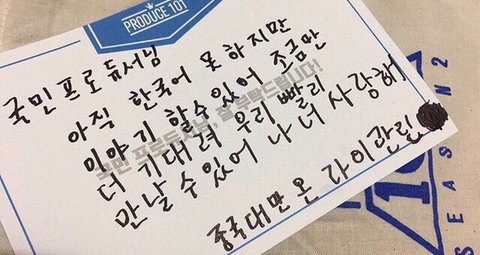 PRODUCE 101
국민 프로듀서님
아직 한국어 못 하지만
이야기 할수있어 조금만
국민 프로듀서님, 잘 부탁드립니다!
더 기대려 우리 빨리
만날 수 있어 나 너 사랑해
중국대만 온 라이관린
SEASON2